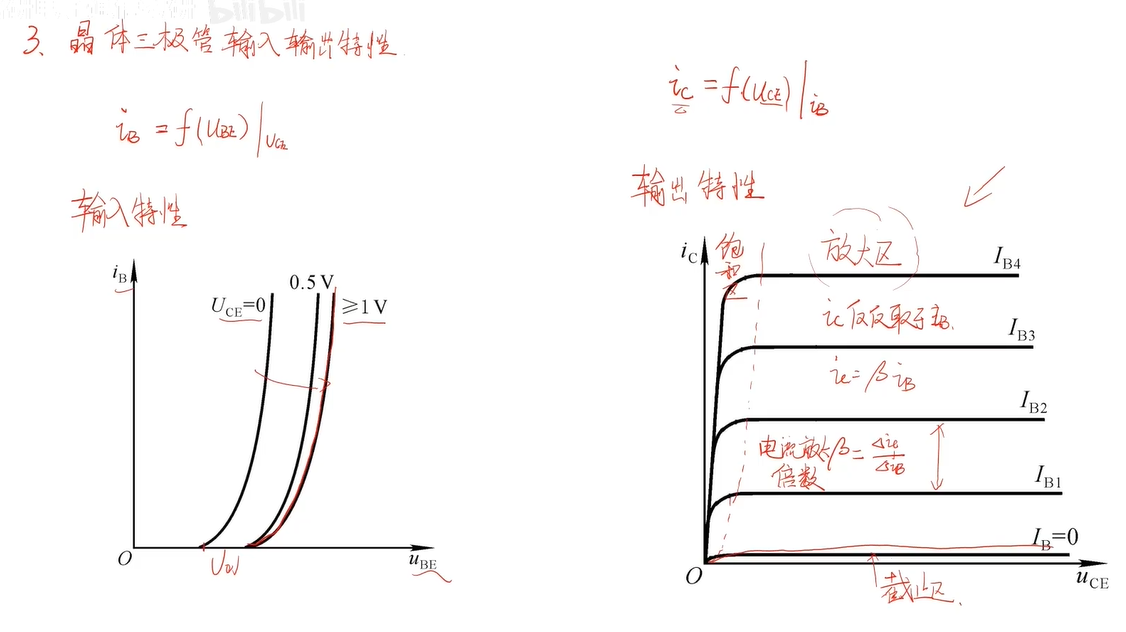 bilibili
3、晶体三极管输入输出特性
iB = f(UBE)|UCE
输入特性
iB
UCE=0
0.5 V
≥1 V
O
Uon
uBE
iC = f(UCE)|iB
输出特性
iC
饱和区
放大区
IB4
iC仅仅取于iB.
IB3
iC = β iB
IB2
电流放大β = ΔiC/ΔiB
倍数
IB1
IB=0
O
uCE
截止区.